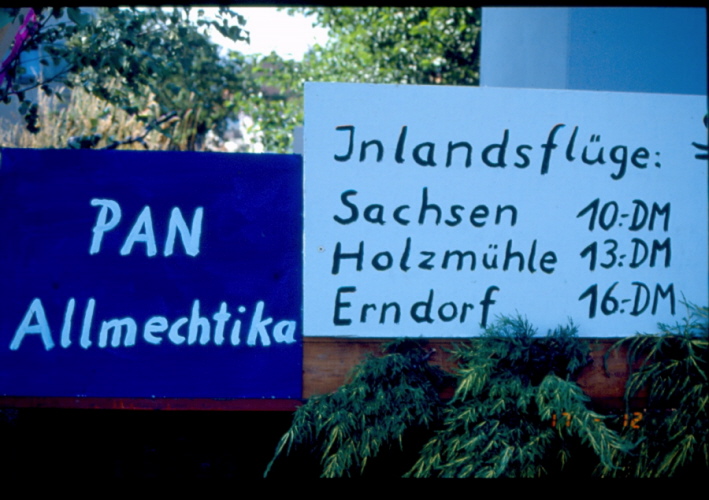 PAN
Allmechtika
Inlandsflüge:
Sachsen 10:-DM
Holzmühle 13:-DM
Erndorf 16:-DM